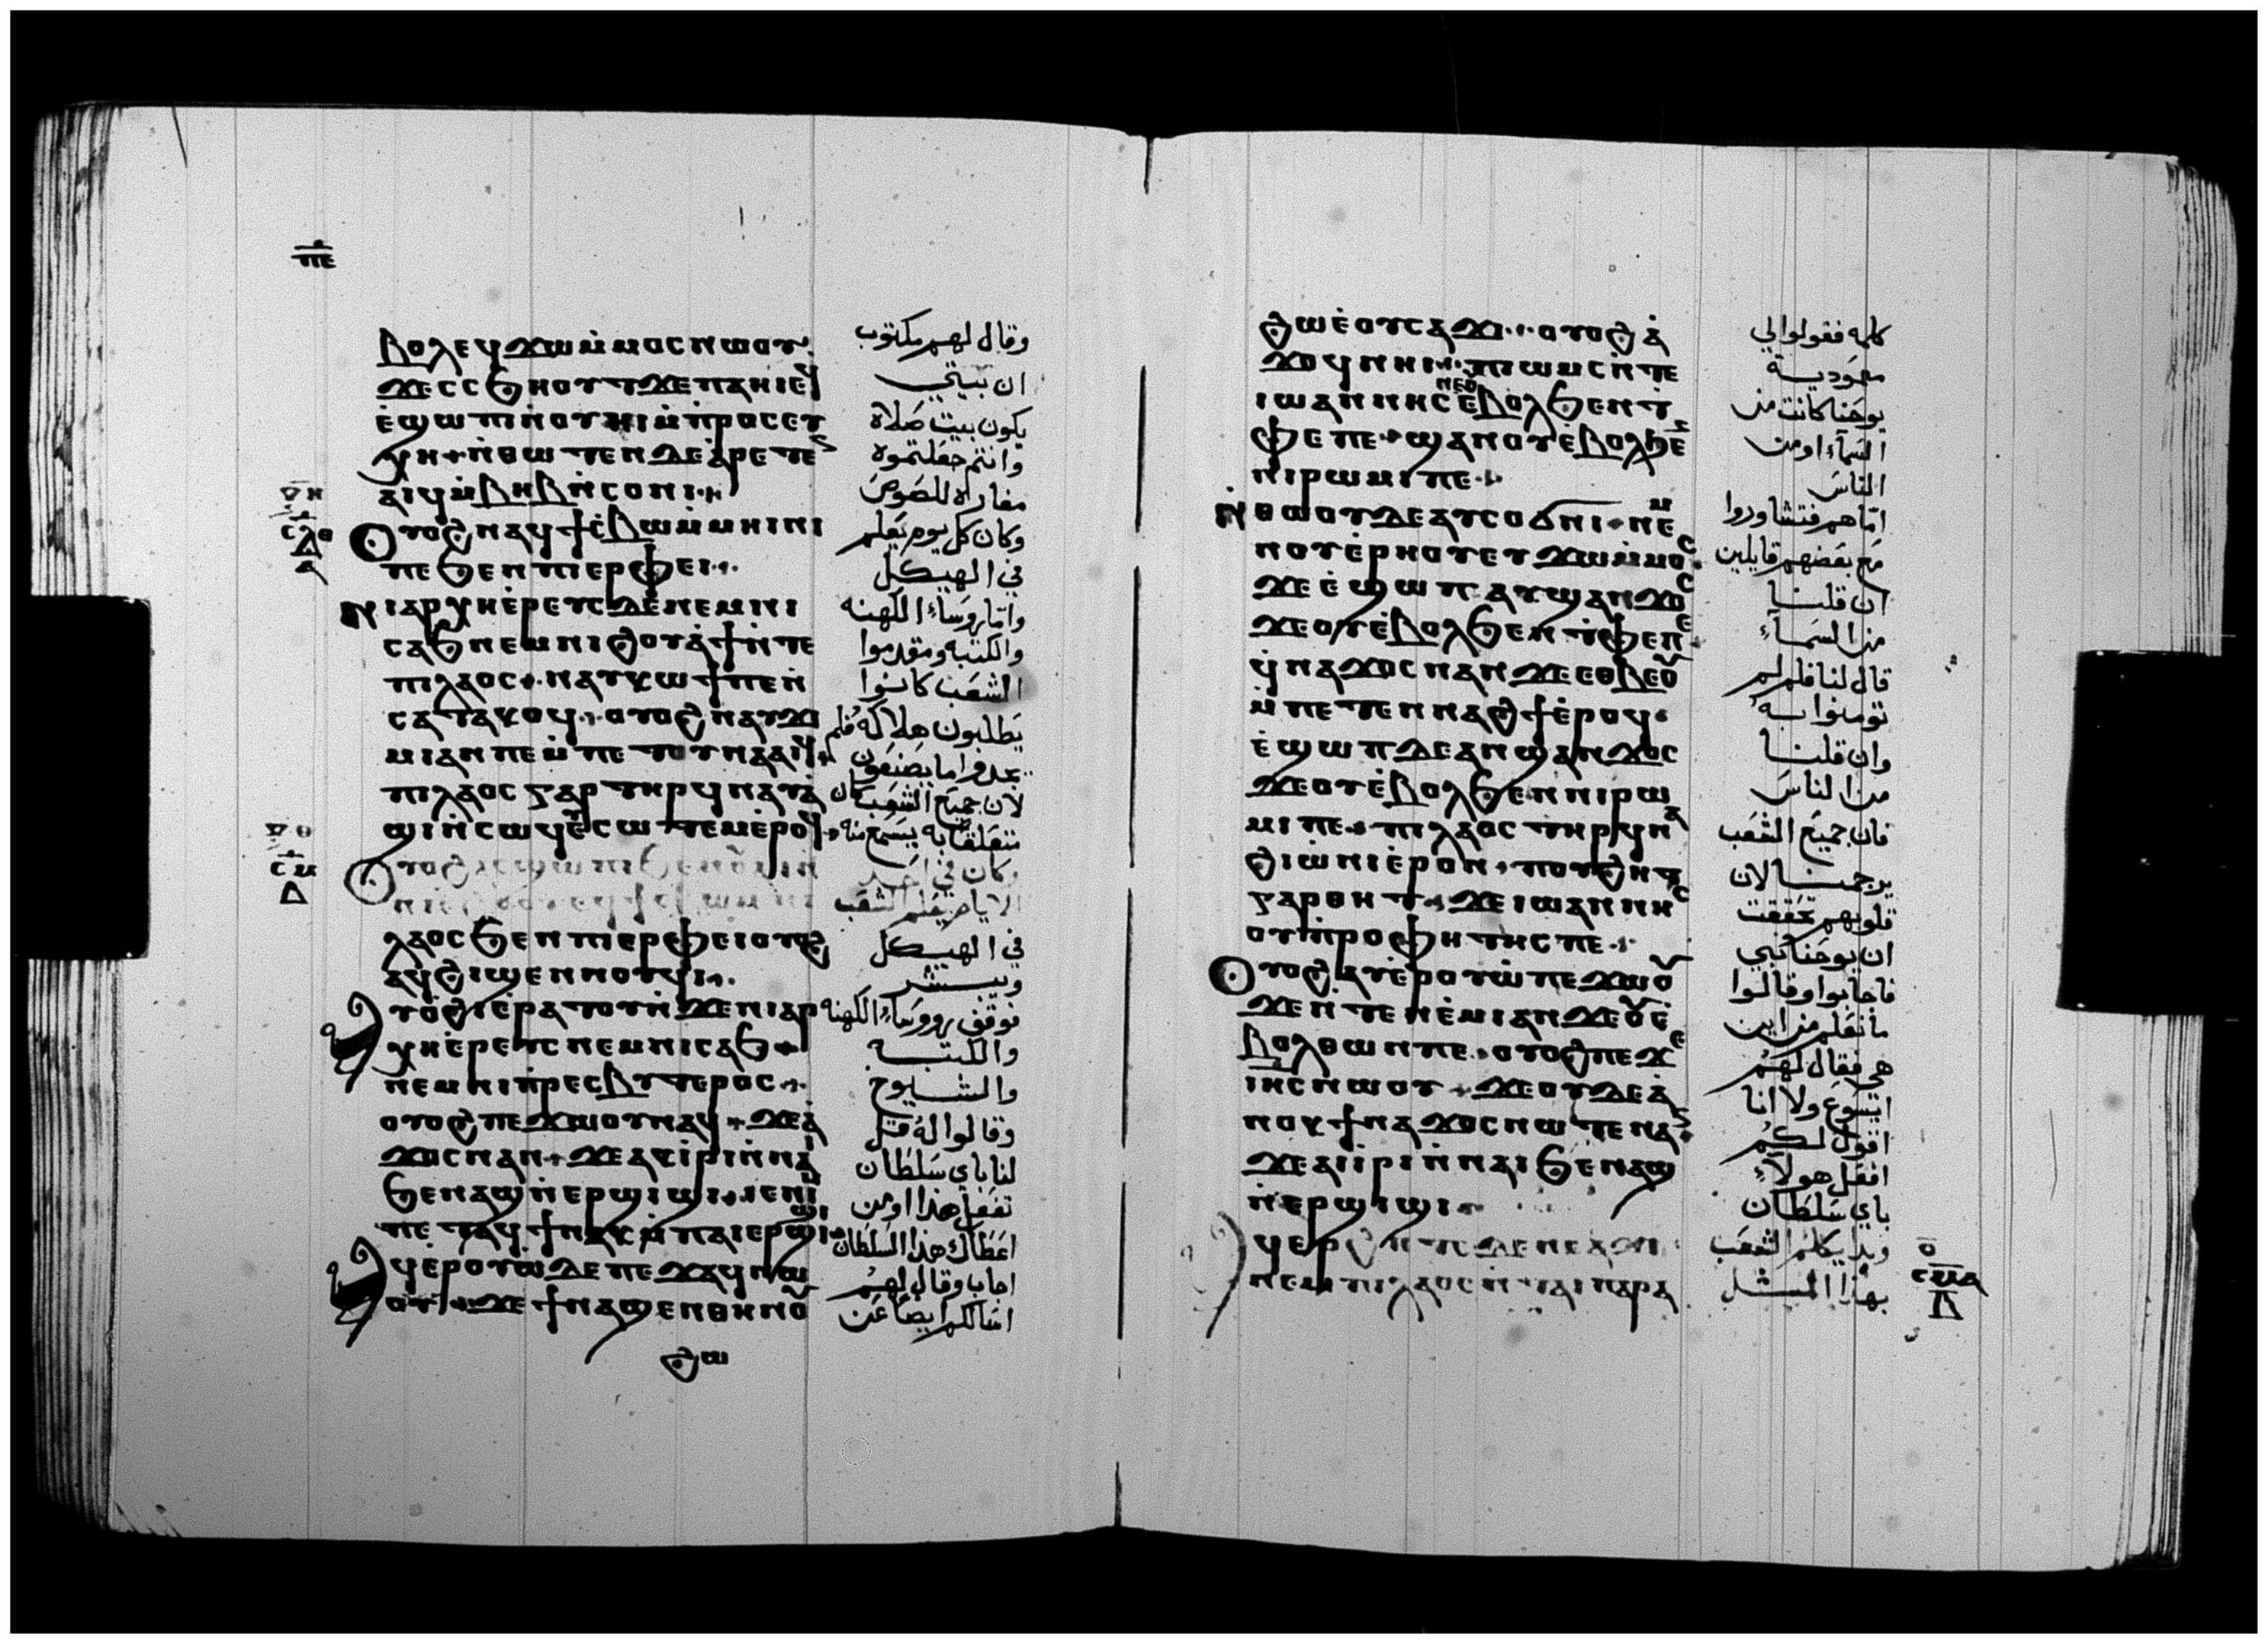 ⲡⲉ
ⲃⲟⲗⲉϥϫⲱⲙⲙⲟⲥⲛⲱⲟⲩ
ϫⲉⲥⲥϧⲏⲟⲩⲧϫⲉⲡⲁⲏⲓⲉϥ
ⲉϣⲱⲡⲓⲛⲟⲩⲏⲓⲙⲡⲣⲟⲥⲉⲩ
ⲭⲏ ⲛⲑⲱⲧⲉⲛⲇⲉⲁⲣⲉⲧⲉ
ⲁⲓϥⲙⲃⲏⲃⲛⲥⲟⲛⲓ
ⲟⲩⲟϩⲛⲁϥϯⲥⲃⲱⲙⲙⲏⲓⲛⲓ
ⲡⲉϧⲉⲛⲡⲓⲉⲣⲫⲉⲓ
ⲛⲓⲁⲣⲭⲏⲉⲣⲉⲩⲥⲇⲉⲛⲉⲙⲛⲓ
ⲥⲁϧⲛⲉⲙⲛⲓϩⲟⲩⲁϯⲛⲧⲉ
ⲡⲓⲗⲁⲟⲥ ⲛⲁⲩⲕⲱϯⲡⲉⲛ
ⲥⲁⲧⲁⲕⲟϥ ⲟⲩⲟϩⲛⲁⲩϫⲓ
ⲙⲓⲁⲛⲡⲉⲙⲡⲉⲧⲟⲩⲛⲁⲁⲓϥ
ⲡⲓⲗⲁⲟⲥⲅⲁⲣⲧⲏⲣϥⲛⲁⲩⲁ
ϣⲓⲛⲥⲱϥⲉⲥⲱⲧⲉⲙⲉⲣⲟϥ
ⲟⲩⲟϩⲁⲥϣⲱⲡⲓϧⲉⲛⲟⲩⲁⲓⲛ
ⲗⲁⲟⲥϧⲉⲛⲡⲓⲉⲣⲫⲉⲓⲟⲩⲟϩ
ⲁϥϩⲓϣⲉⲛⲛⲟⲩϥⲓ
ⲁⲩⲟϩⲓⲉⲣⲁⲧⲟⲩⲛϫⲉⲛⲓⲁⲣ
ⲭⲏⲉⲣⲉⲩⲥⲛⲉⲙⲛⲓⲥⲁϧ
ⲛⲉⲙⲛⲓⲡⲣⲉⲥⲃⲩⲧⲉⲣⲟⲥ
ⲟⲩⲟϩⲡⲉϫⲱⲟⲩⲛⲁϥ ϫⲉⲁ
ϫⲟⲥⲛⲁⲛ ϫⲉⲁⲕⲓⲣⲓⲛⲛⲁⲓ
ϧⲉⲛⲁϣⲛⲉⲣϣⲓϣⲓ ⲓⲉⲛⲓⲙ
ⲡⲉⲧⲁϥϯⲛⲁⲕⲙⲡⲁⲓⲉⲣϣⲓϣⲓ
ⲁϥⲉⲣⲟⲩⲱⲇⲉⲡⲉϫⲁϥⲛⲱ
ⲟⲩ ϫⲉϯⲛⲁϣⲉⲛⲑⲏⲛⲟⲩ
ϩⲱ
وقال لهم مكتوب
ان بيتي
يكون بيت صلاة
وانتم جعلتموه
مغارة للصوص
وكان كل يوم يعلم
في الهيكل
واما روساء الكهنه
والكتبه ومقدموا
الشعب كانوا
يطلبون هلاكه فلم
يجدوا ما يصنعون
لان جميع الشعب كان
متعلقا به يسمع منه
وكان في احد
الايام يعلم الشعب
في الهيكل
ويبشر
فوقف روساء الكهنه
والكتبه
والشيوخ
وقالوا له قل
لنا باي سلطان
تفعل هذا او من
اعطاك هذا السلطان
اجاب وقال لهم
اسالكم ايضا عن
ϩⲱⲉⲟⲩⲥⲁϫⲓ ⲟⲩⲟϩⲁ
ϫⲟϥⲛⲏⲓ ⲡⲓⲱⲙⲥⲛⲧⲉ
ⲓⲱⲁⲛⲛⲏⲥⲛⲉⲟⲩⲉⲃⲟⲗϧⲉⲛⲧ
ⲫⲉⲡⲉ ϣⲁⲛⲟⲩⲉⲃⲟⲗϧⲉ
ⲛⲓⲣⲱⲙⲓⲡⲉ
ⲛⲑⲱⲟⲩⲇⲉⲁⲩⲥⲟϭⲛⲓ ⲛⲉⲙ
ⲛⲟⲩⲉⲣⲏⲟⲩⲉⲩϫⲱⲙⲙⲟⲥ
ϫⲉⲉϣⲱⲡⲁⲩϣⲁⲛϫⲟⲥ
ϫⲉⲟⲩⲉⲃⲟⲗϧⲉⲛⲧⲫⲉⲡⲉ
ϥⲛⲁϫⲟⲥⲛⲁⲛϫⲉⲉⲑⲃⲉⲟⲩ
ⲙⲡⲉⲧⲉⲛⲛⲁϩϯⲉⲣⲟϥ
ⲉϣⲱⲡⲇⲉⲁⲛϣⲁⲛϫⲟⲥ
ϫⲉⲟⲩⲉⲃⲟⲗϧⲉⲛⲛⲓⲣⲱ
ⲙⲓⲡⲉ ⲡⲓⲗⲁⲟⲥⲧⲏⲣϥⲛⲁ
ϩⲓⲱⲛⲓⲉⲣⲟⲛ ⲡⲟⲩϩⲏⲧ
ⲅⲁⲣⲑⲏⲧ ϫⲉⲓⲱⲁⲛⲛⲏⲥ
ⲟⲩⲡⲣⲟⲫⲏⲧⲏⲥⲡⲉ
ⲟⲩⲟϩⲁⲩⲉⲣⲟⲩⲱⲡⲉϫⲱⲟⲩ
ϫⲉⲛⲧⲉⲛⲉⲙⲓⲁⲛϫⲉⲟⲩⲉ
ⲃⲟⲗⲑⲱⲛⲡⲉ ⲟⲩⲟϩⲡⲉϫⲉ
ⲓⲏⲥⲛⲱⲟⲩ ϫⲉⲟⲩⲇⲉⲁ
ⲛⲟⲕϯⲛⲁϫⲟⲥⲛⲱⲧⲉⲛⲁⲛ
ϫⲉⲁⲓⲓⲣⲓⲛⲛⲁⲓϧⲉⲛⲁϣ
ⲛⲉⲣϣⲓϣⲓ
ⲁϥⲉⲣϩⲏⲧⲥⲇⲉⲛⲥⲁϫⲓ
ⲛⲉⲙⲡⲓⲗⲁⲟⲥⲛⲧⲁⲓⲡⲁⲣⲁ
كلمه فقولوا لي
معمودية
يوحنا كانت من
السماء او من
الناس
اما هم فتشاوروا
مع بعضهم قايلين
ان قلنا
من السماء
قال لنا فلم لم
تومنوا به
وان قلنا
من الناس
فان جميع الشعب
يرجمنا لان
قلوبهم تحققت
ان يوحنا نبي
فاجابوا وقالوا
ما نعلم من اين
هي فقال لهم
ايسوع ولا انا
اقول لكم
افعل هولاء
باي سلطان
وبدا يكلم الشعب
بهذا المثل
ⲥⲙⲁ